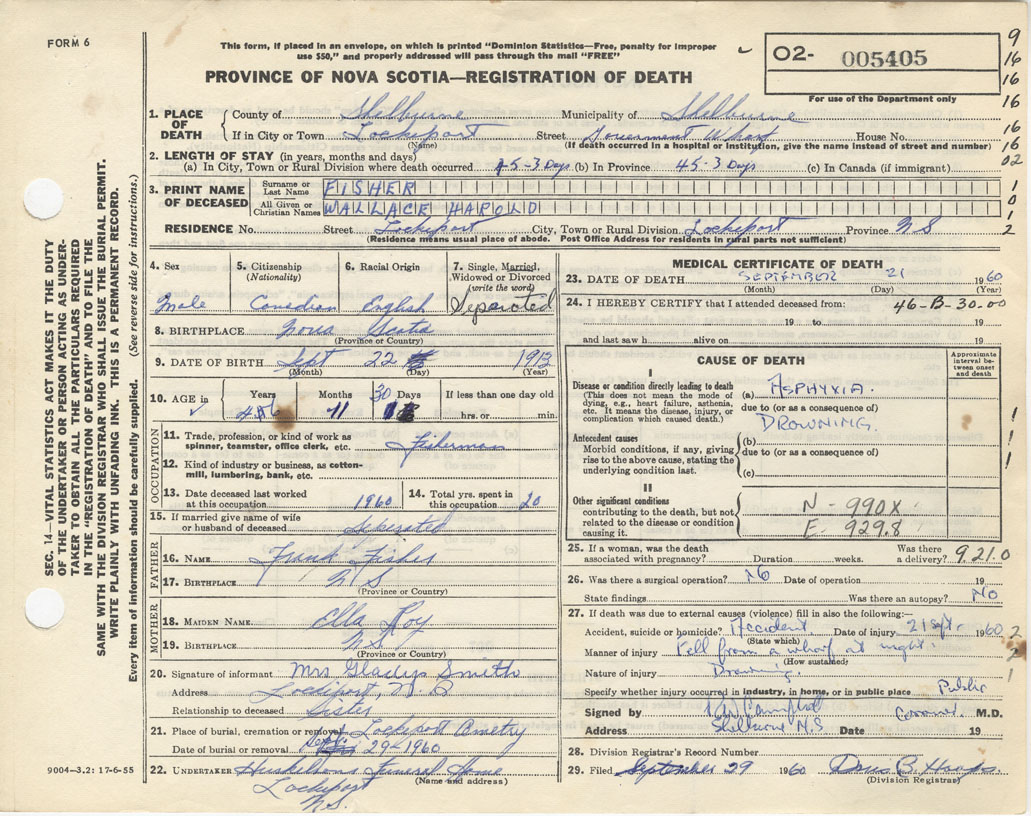 FORM 6
This form, if placed in an envelope, on which is printed "Dominion Statistics—Free, penalty for improper
use $50," and properly addressed will pass through the mail "FREE"
PROVINCE OF NOVA SCOTIA—REGISTRATION OF DEATH
O2- 005405
For use of the Department only
9
16
16
16
16
16
02
1
0
1
2
SEC. 14—VITAL STATISTICS ACT MAKES IT THE DUTY
OF THE UNDERTAKER OR PERSON ACTING AS UNDER-
TAKER TO OBTAIN ALL THE PARTICULARS REQUIRED
IN THE "REGISTRATION OF DEATH" AND TO FILE THE
SAME WITH THE DIVISION REGISTRAR WHO SHALL ISSUE THE BURIAL PERMIT.
WRITE PLAINLY WITH UNFADING INK. THIS IS A PERMANENT RECORD.
Every item of information should be carefully supplied. (See reverse side for instructions.)
1. PLACE OF DEATH
County of Shelburne Municipality of Shelburne
If in City or Town Lockeport Street Government Wharf House No.
(Name) (If death occurred in a hospital or institution, give the name instead of street and number)
2. LENGTH OF STAY (in years, months and days)
(a) In City, Town or Rural Division where death occurred 45-3 Days (b) In Province 45-3 Days (c) In Canada (if immigrant)
3. PRINT NAME OF DECEASED
Surname or Last Name FISHER
All Given or Christian Names WALLACE HAROLD
RESIDENCE No. Street Lockeport City, Town or Rural Division Lockeport Province NS
(Residence means usual place of abode. Post Office Address for residents in rural parts not sufficient)
4. Sex Male
5. Citizenship (Nationality) Canadian
6. Racial Origin English
7. Single, Married, Widowed or Divorced (write the word) Separated
8. BIRTHPLACE Nova Scotia
(Province or Country)
9. DATE OF BIRTH Sept 22 1913
(Month) (Day) (Year)
10. AGE in Years 46 Months 11 Days 30 If less than one day old hrs. or min.
OCCUPATION
11. Trade, profession, or kind of work as spinner, teamster, office clerk, etc. Fisherman
12. Kind of industry or business, as cotton-mill, lumbering, bank, etc.
13. Date deceased last worked at this occupation 1960
14. Total yrs. spent in this occupation 20
15. If married give name of wife or husband of deceased Seperated
FATHER
16. NAME Frank Fisher
17. BIRTHPLACE NS
(Province or Country)
MOTHER
18. MAIDEN NAME Ella Roy
19. BIRTHPLACE NS
(Province or Country)
20. Signature of informant Mrs Gladys Smith
Address Lockeport, N.S
Relationship to deceased Sister
21. Place of burial, cremation or removal Lockeport
Date of burial or removal Sept 29-1960
22. UNDERTAKER Funeral Home
(Name and address)
Lockeport
N.S.
9004-3.2: 17-6-55
MEDICAL CERTIFICATE OF DEATH
23. DATE OF DEATH SEPTEMBER 21 1960
(Month) (Day) (Year)
24. I HEREBY CERTIFY that I attended deceased from: 46-B-30.00
19 to 19
and last saw h alive on 19
CAUSE OF DEATH
Approximate interval between onset and death
I
Disease or condition directly leading to death
(This does not mean the mode of dying, e.g., heart failure, asthenia, etc. It means the disease, injury, or complication which caused death.)
(a) ASPHYXIA.
due to (or as a consequence of)
DROWNING.
Antecedent causes
Morbid conditions, if any, giving rise to the above cause, stating the underlying condition last.
(b)
due to (or as a consequence of)
(c)
II
Other significant conditions
contributing to the death, but not related to the disease or condition causing it.
N-990X.
E-929.8
1
1
1
25. If a woman, was the death associated with pregnancy? Duration weeks. Was there a delivery? 9.21.0
26. Was there a surgical operation? No Date of operation 19
State findings Was there an autopsy? No
27. If death was due to external causes (violence) fill in also the following:—
Accident, suicide or homicide? Accident Date of injury 21 Sept. 1960
(State which)
Manner of injury Fell from a wharf at night.
(How sustained)
Nature of injury Drowning.
Specify whether injury occurred in industry, in home, or in public place Public
2
2
1
Signed by Campbell Coroner M.D.
Address Shelburne N.S. Date 19
28. Division Registrar's Record Number
29. Filed September 29 1960
(Division Registrar)